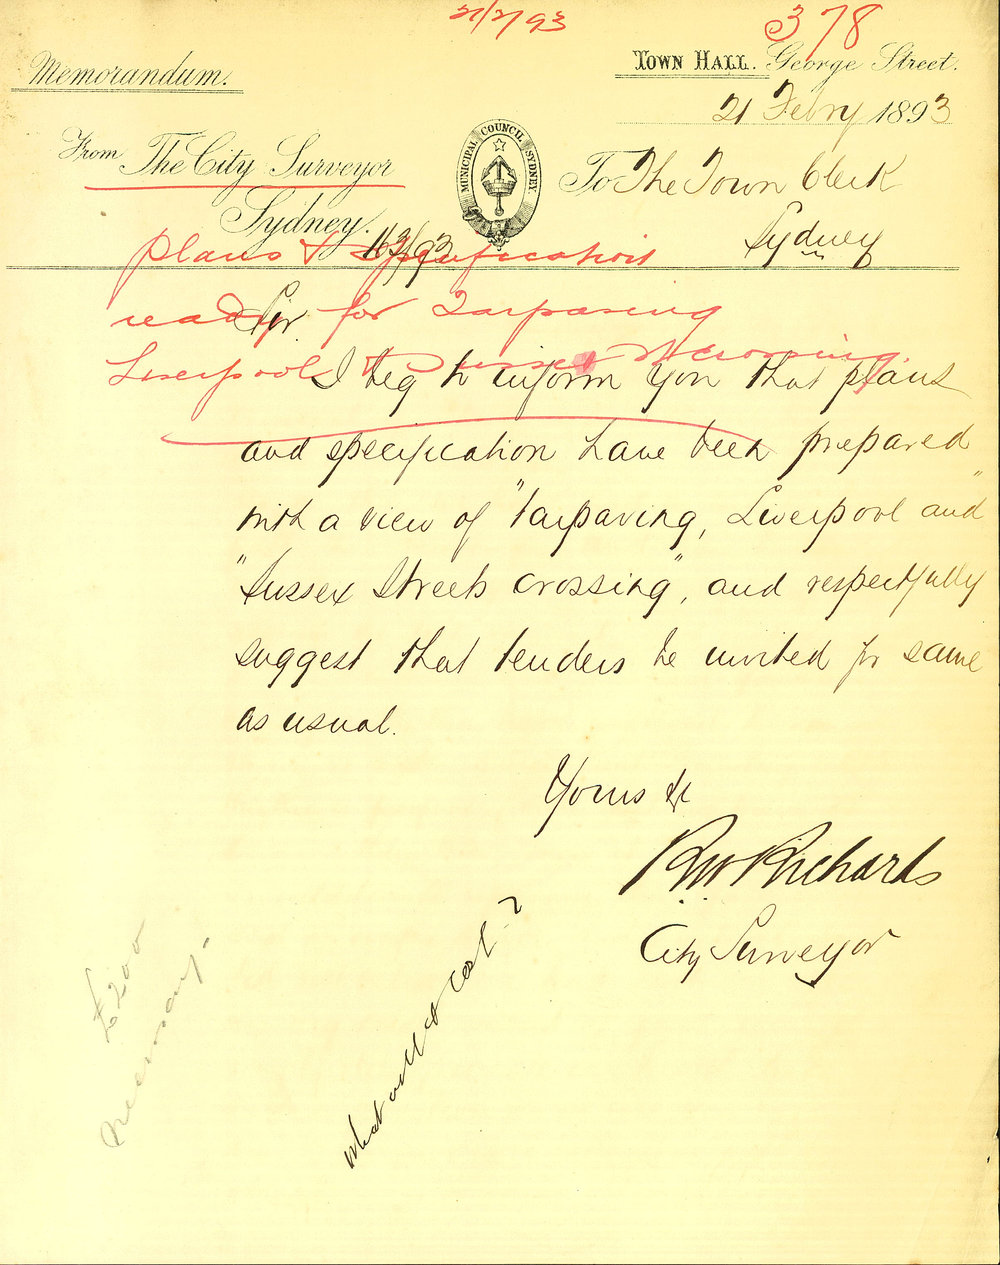 21/2/93
378
Memorandum.
Town Hall. George Street.
21 Febry 1893
From The City Surveyor
Sydney.
MUNICIPAL COUNCIL SYDNEY.
To The Town Clerk
Sydney
plans & specification
ready for Tarpaving
Liverpool & Sussex St crossing.
Sir
I beg to inform you that plans
and specification have been prepared
with a view of "tarpaving, Liverpool and"
"Sussex Streets crossing", and respectfully
suggest that tenders be invited for same
as usual.
Yours &c
R W Richards
City Surveyor
What will it cost?
£200